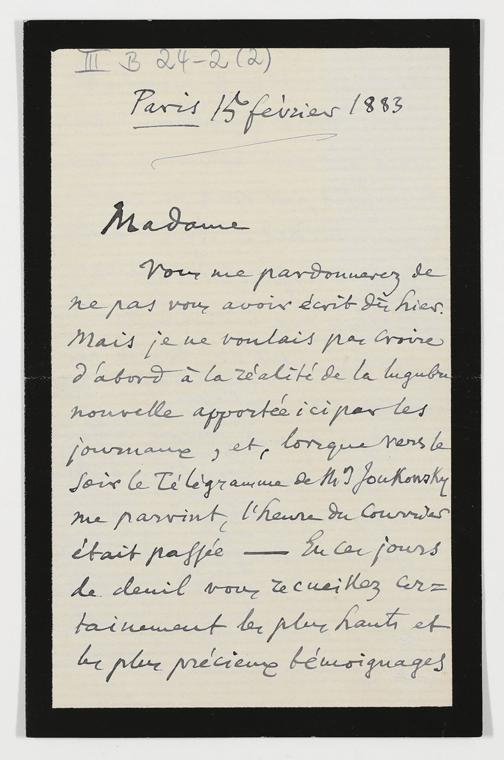 III B 24-2 (2)
Paris 15 février 1883
Madame
Vous me pardonnerez de
ne pas vous avoir écrit dès hier.
Mais je ne voulais pas croire
d'abord à la réalité de la lugubre
nouvelle apportée ici par les
journaux, et, lorsque vers le
soir le Télégramme de Mr J Joukowsky
me parvint, l'heure du Courrier
était passée — En ces jours
de deuil vous recueillez cer=
tainement les plus hauts et
les plus précieux témoignages